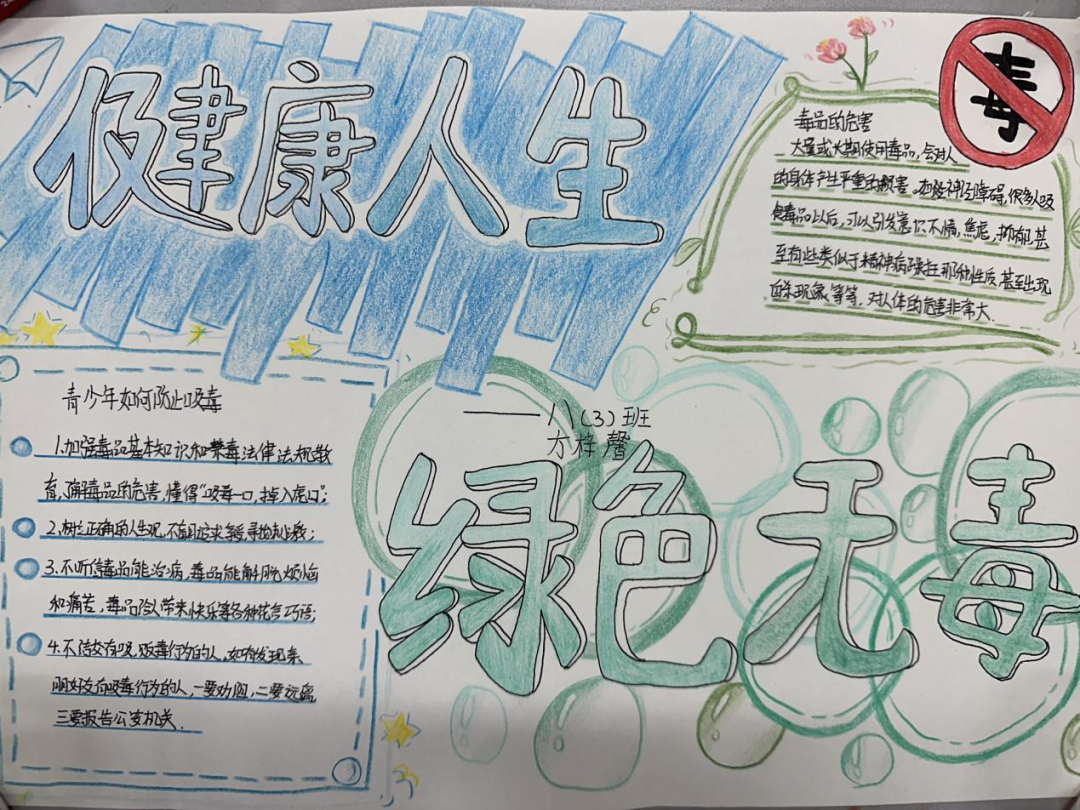 健康人生
毒
毒品的危害
大量或长期使用毒品,会对人
的身体产生严重的损害。如神经障碍,很多人吸
食毒品以后,可以引发意识不清,焦虑,抑郁,甚
至有些类似于精神病躁狂那种性质,甚至出现
自杀现象等等,对人体的危害非常大.
青少年如何防止吸毒
1.加强毒品基本知识和禁毒法律法规教
育,了解毒品的危害,懂得“吸毒一口,掉入虎口”;
2.树立正确的人生观,不盲目追求享受,寻求刺激;
3.不听信毒品能治病,毒品能解脱烦恼
和痛苦,毒品给人带来快乐等各种花言巧语;
4.不结交有吸、贩毒行为的人,如有发现亲
朋好友有吸毒行为的人,一要劝阻,二要远离,
三要报告公安机关.
——八(3)班
方梓馨
绿色无毒